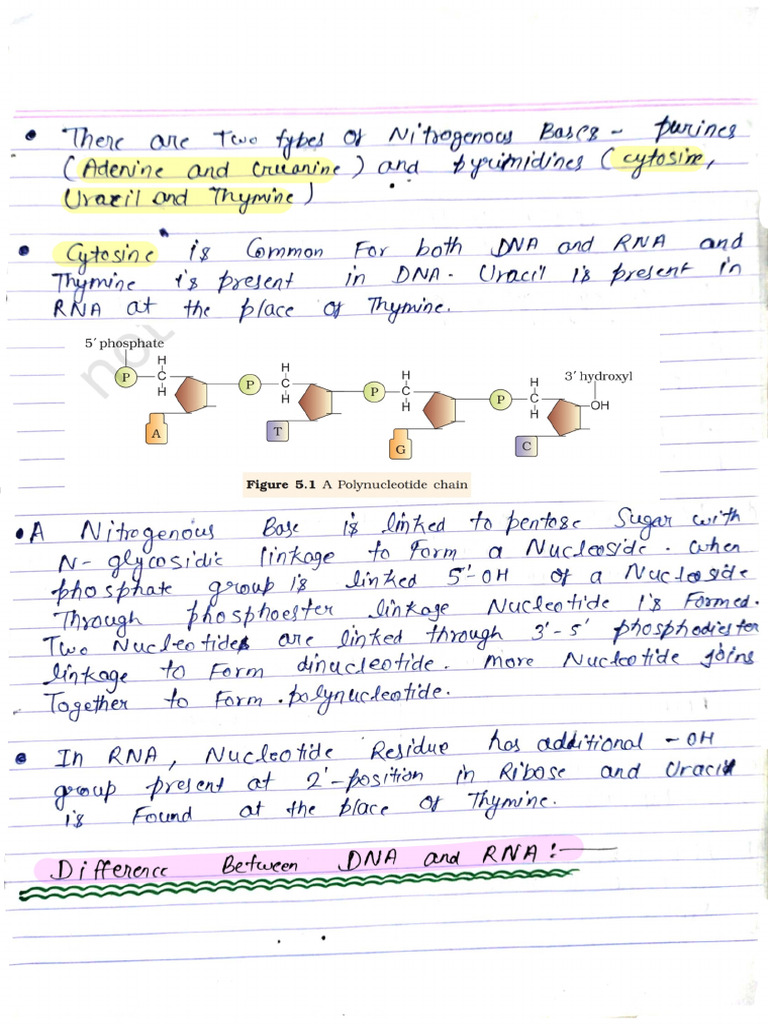 • There are Two types of Nitrogenous Bases - purines
(Adenine and Guanine) and pyrimidines (cytosine,
Uracil and Thymine)
• Cytosine is Common For both DNA and RNA and
Thymine is present in DNA. Uracil is present in
RNA at the place of Thymine.
not
5′ phosphate
3′ hydroxyl
H H H H
P C P C P C P C OH
H H H H
A T G C
Figure 5.1 A Polynucleotide chain
• A Nitrogenous Base is linked to pentose Sugar with
N-glycosidic linkage to Form a Nucleoside. When
phosphate group is linked 5'-OH of a Nucleoside
Through phosphoester linkage Nucleotide is Formed.
Two Nucleotides are linked through 3'-5' phosphodiester
linkage to Form dinucleotide. More Nucleotide joins
Together to Form polynucleotide.
• In RNA, Nucleotide Residue has additional -OH
group present at 2'-position in Ribose and Uracil
is Found at the place of Thymine.
Difference Between DNA and RNA:-